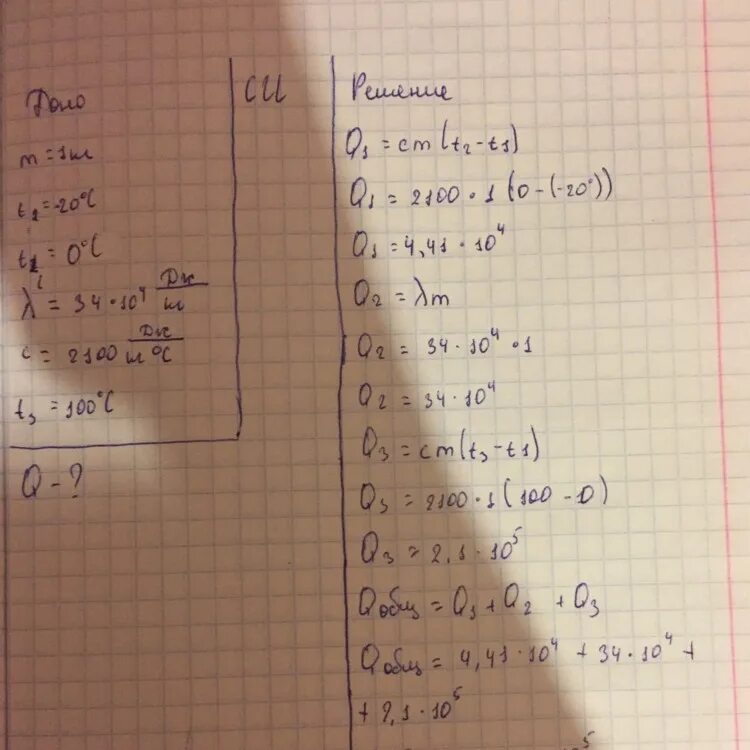 Дано
m = 1кг
t₁ = -20°C
t₂ = 0°C
λ = 34·10⁴ Дж/кг
c = 2100 Дж/кг °C
t₃ = 100°C
Q - ?
СИ
Решение
Q₁ = cm(t₂-t₁)
Q₁ = 2100·1(0-(-20°))
Q₁ = 4,41·10⁴
Q₂ = λm
Q₂ = 34·10⁴·1
Q₂ = 34·10⁴
Q₃ = cm(t₃-t₁)
Q₃ = 2100·1(100-0)
Q₃ = 2,1·10⁵
Qобщ = Q₁+Q₂+Q₃
Qобщ = 4,41·10⁴ + 34·10⁴ +
+ 2,1·10⁵